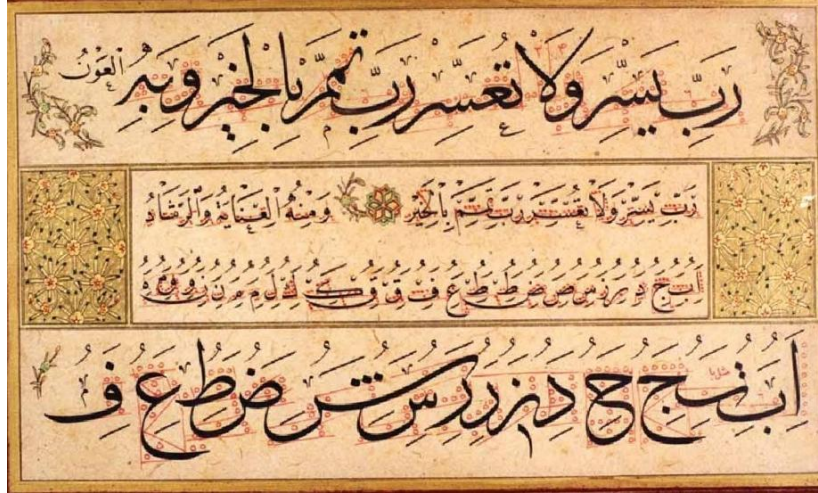 رَبِّ يَسِّرْ وَلَا تُعَسِّرْ رَبِّ تَمِّمْ بِالْخَيْرِ وَبِهِ الْعَوْنُ
رَبِّ يَسِّرْ وَلَا تُعَسِّرْ رَبِّ تَمِّمْ بِالْخَيْرِ وَمِنْهُ الْعِنَايَةُ وَالرَّشَادُ
ا ب ج د ر س ص ط ع ف ق ك ل م ن و ه
ا ب ج ح د ر س ص ط ع ف